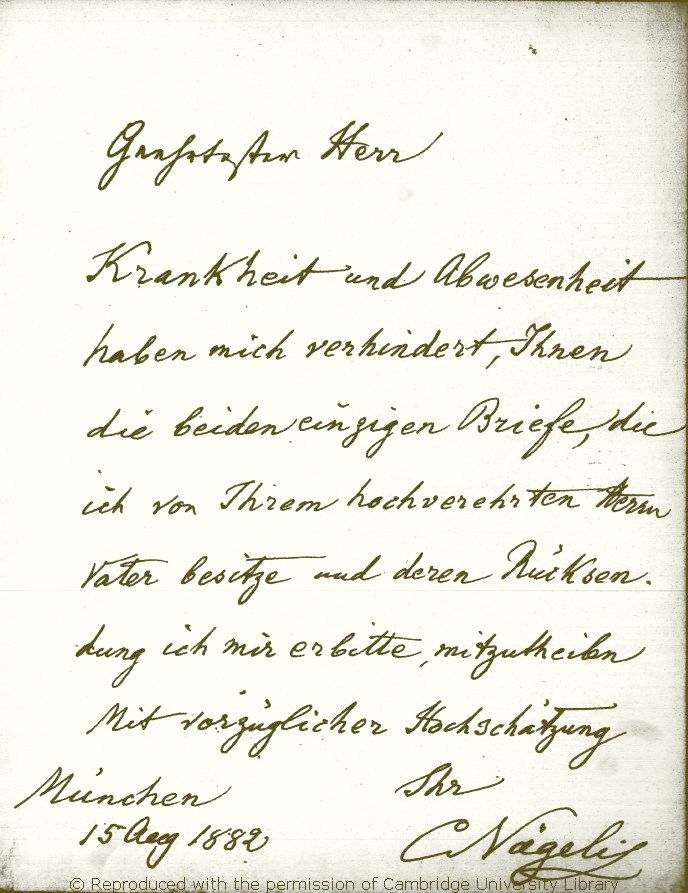 Geehrtester Herr
Krankheit und Abwesenheit
haben mich verhindert, Ihnen
die beiden einzigen Briefe, die
ich von Ihrem hochverehrten Herrn
Vater besitze und deren Rücksen-
dung ich mir erbitte, mitzutheilen
Mit vorzüglicher Hochschätzung
München Ihr
15 Aug 1882 C Nägeli
© Reproduced with the permission of Cambridge University Library